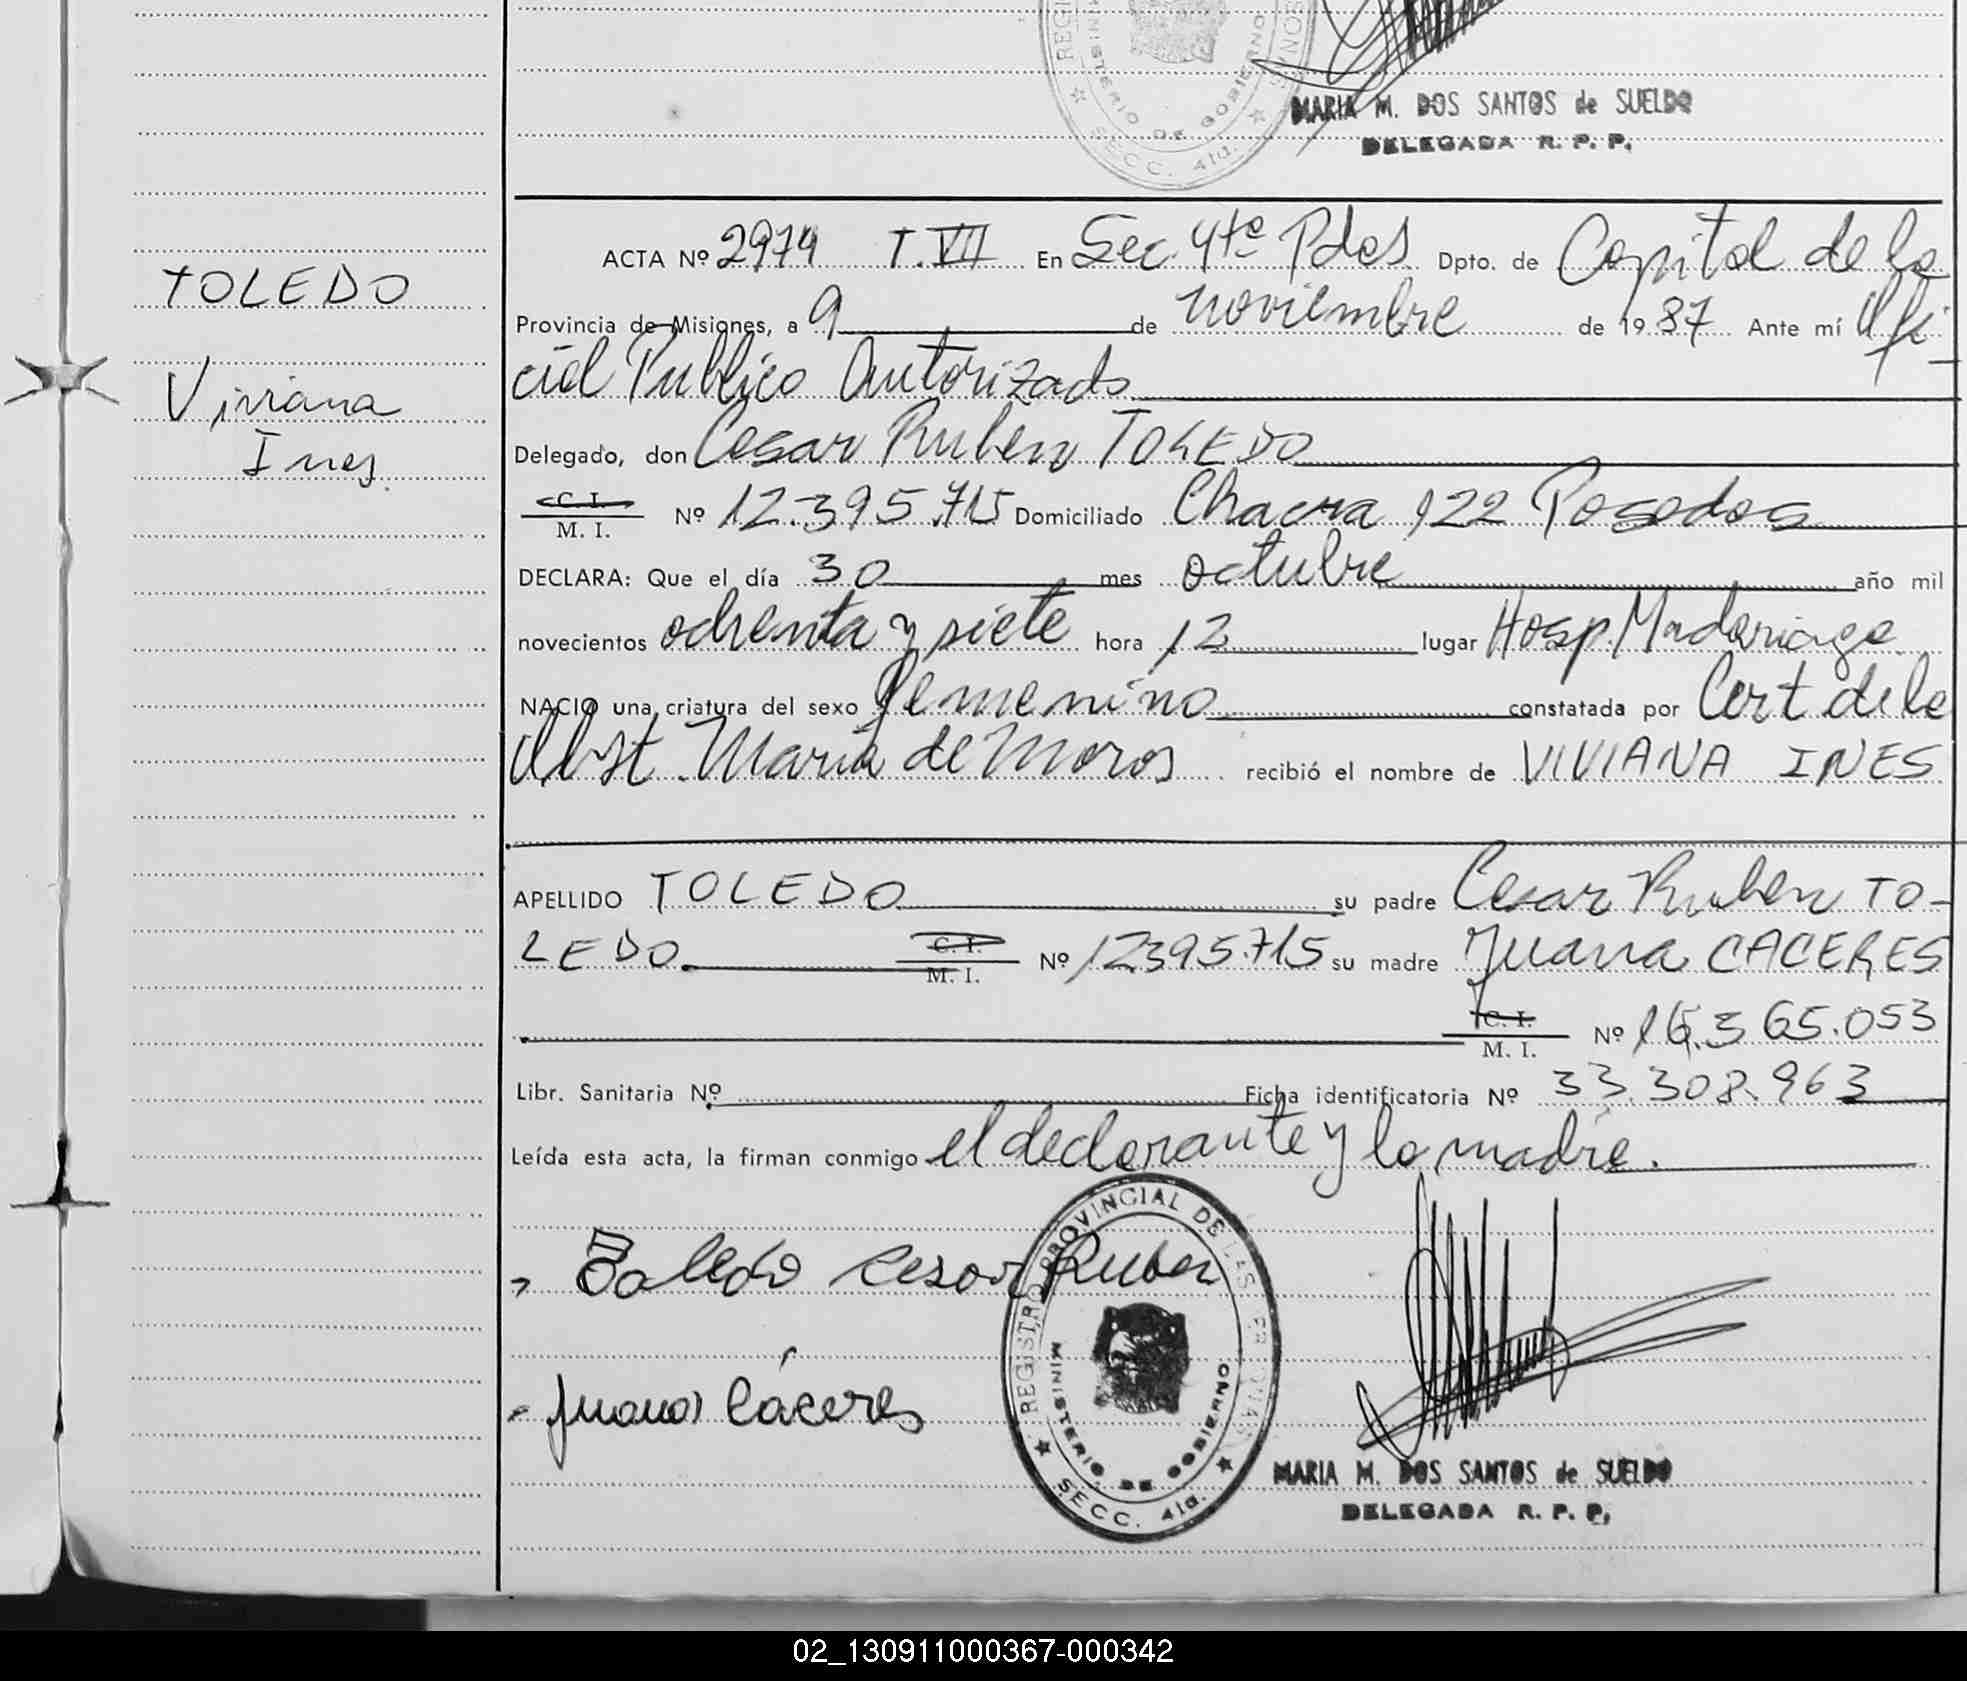 MARIA M. DOS SANTOS de SUELDO
DELEGADA R. P. P.
MINISTERIO DE GOBIERNO
SECC. 4ta.
TOLEDO
Viviana
Ines
ACTA Nº 2974 T. VII En Sec. 4ta Pdas Dpto. de Capital de la
Provincia de Misiones, a 9 de noviembre de 1987 Ante mí Ofi-
cial Publico Autorizado
Delegado, don Cesar Ruben TOLEDO
C. I.
M. I. Nº 12.395.715 Domiciliado Chacra 122 Posadas
DECLARA: Que el día 30 mes octubre año mil
novecientos ochenta y siete hora 12 lugar Hosp. Madariaga
NACIO una criatura del sexo femenino constatada por Cert de la
Obst. Maria de Moros recibió el nombre de VIVIANA INES
APELLIDO TOLEDO su padre Cesar Ruben TO-
LEDO C. I. M. I. Nº 12395.715 su madre Juana CACERES
C. I.
M. I. Nº 16.365.053
Libr. Sanitaria Nº Ficha identificatoria Nº 33.308.963
Leída esta acta, la firman conmigo el declarante y la madre.
Toledo Cesar Ruben
Juana Cáceres
REGISTRO PROVINCIAL DE LAS PERSONAS
MINISTERIO DE GOBIERNO
SECC. 4ta.
MARIA M. DOS SANTOS de SUELDO
DELEGADA R. P. P.
02_130911000367-000342